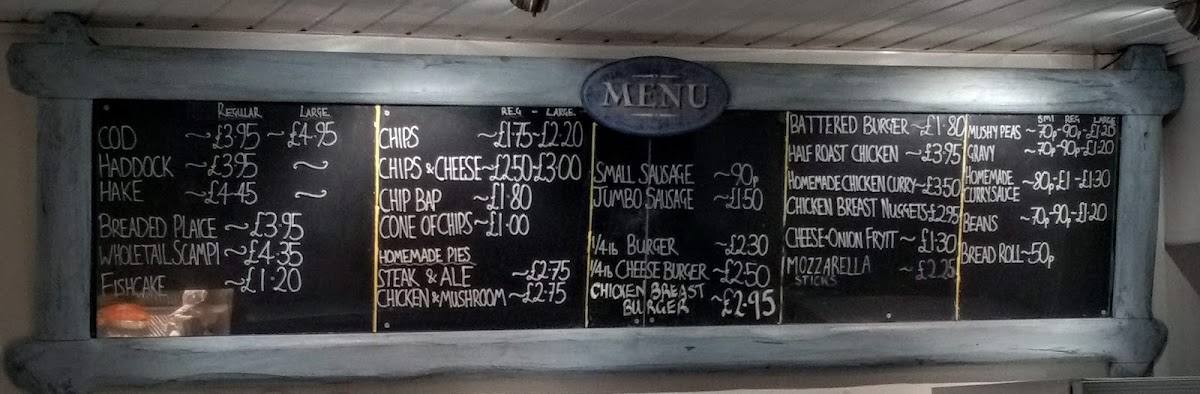 MENU
REGULAR LARGE
COD ~£3.95 ~£4.95
HADDOCK ~£3.95 ~
HAKE ~£4.45 ~
BREADED PLAICE ~£3.95
WHOLETAIL SCAMPI ~£4.35
FISHCAKE ~£1.20
REG - LARGE
CHIPS ~£1.75~£2.20
CHIPS & CHEESE~£2.50£3.00
CHIP BAP ~£1.80
CONE OF CHIPS ~£1.00
HOMEMADE PIES
STEAK & ALE ~£2.75
CHICKEN & MUSHROOM ~£2.75
SMALL SAUSAGE ~90p
JUMBO SAUSAGE ~£1.50
1/4lb BURGER ~£2.30
1/4lb CHEESE BURGER ~£2.50
CHICKEN BREAST
BURGER ~£2.95
BATTERED BURGER ~£1.80
HALF ROAST CHICKEN ~£3.95
HOMEMADE CHICKEN CURRY~£3.50
CHICKEN BREAST NUGGETS£2.95
CHEESE-ONION FRYIT ~£1.30
MOZZARELLA ~£2.25
STICKS
SMI REG LARGE
MUSHY PEAS ~70p-90p-£1.20
GRAVY ~70p-90p-£1.20
HOMEMADE
CURRY SAUCE ~80p-£1-£1.30
BEANS ~70p-90-£1.20
BREAD ROLL~50p